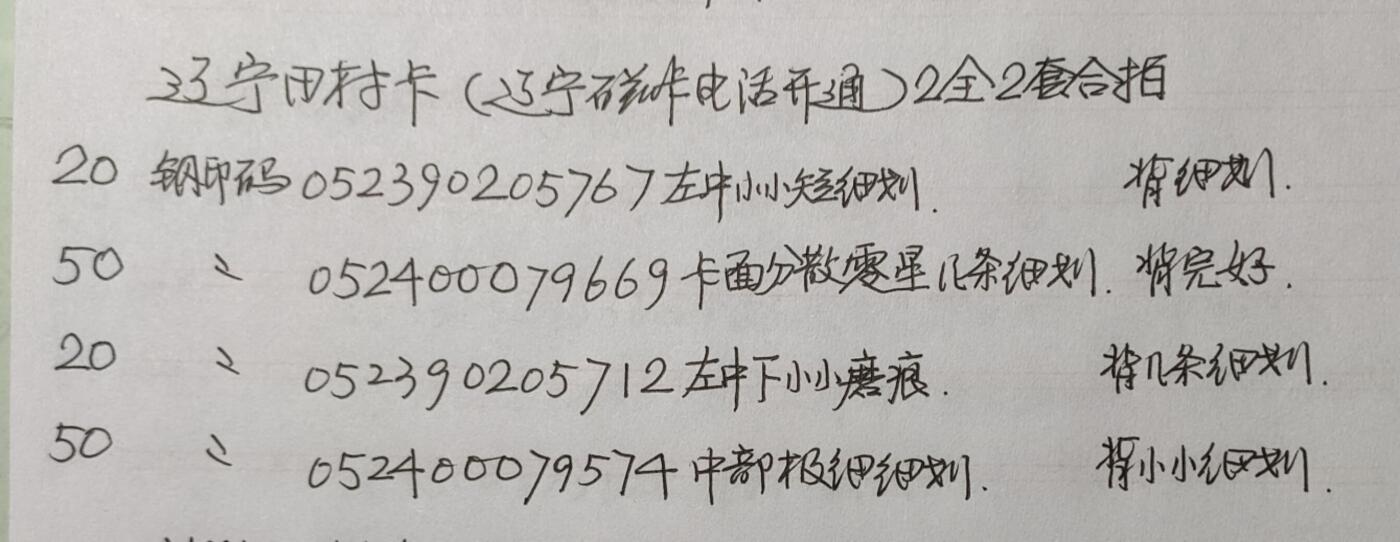 辽宁田村卡(辽宁磁卡电话开通)2全2套合拍
20 钢印码052390205767左中小小短细划. 背细划.
50 〃 052400079669卡面分散零星几条细划. 背完好.
20 〃 052390205712左中下小小磨痕. 背几条细划.
50 〃 052400079574中部极细细划. 背小小细划.